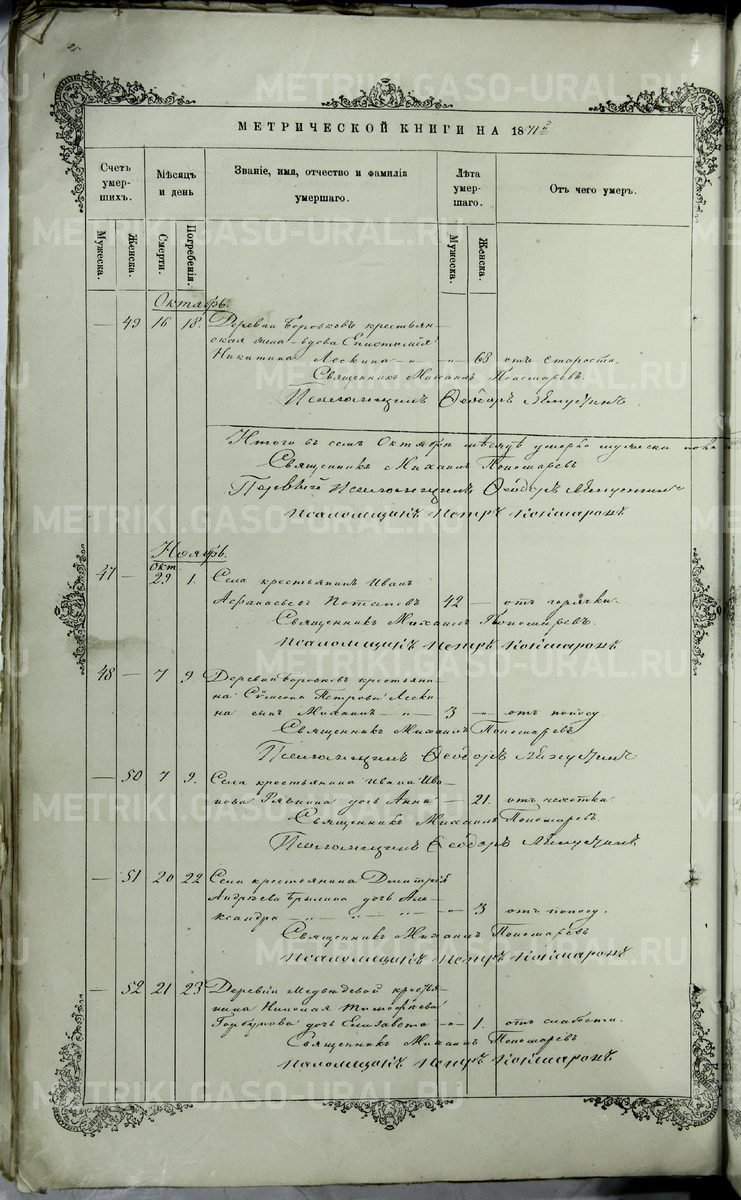 METRIKI.GASO-URAL.RU
МЕТРИЧЕСКОЙ КНИГИ НА 1871 г
Счетъ умер-шихъ.
Мѣсяцъ и день
Званіе, имя, отчество и фамилія умершаго.
Лѣта умер-шаго.
Отъ чего умеръ.
Мужеска.
Женска.
Смерти.
Погребенія.
Мужеска.
Женска.
Октябрь.
— 49 16 18. Деревни Боровковъ крестьян-
ская вдова Епистимія
Никитина Лескина — " — " 68 отъ старости.
Священникъ Михаилъ Пономаревъ.
Псаломщикъ Ѳеодоръ
Итого въ семъ Октябрѣ мѣсяцѣ умерло мужеска
Священникъ Михаилъ Пономаревъ
Первый Псаломщикъ Ѳеодоръ
псаломщикъ Петръ
Ноябрь.
Окт.
47 — 29 1. Села крестьянинъ Иванъ
Афанасьевъ Потаповъ 42 — отъ горячки.
Священникъ Михаилъ Пономаревъ.
псаломщикъ Петръ
48 — 7 9. Деревни Боровковъ крестьяни-
на Сѵмеона Петрова Лески-
на сынъ Михаилъ — " — 3 " отъ поносу.
Священникъ Михаилъ Пономаревъ
Псаломщикъ Ѳеодоръ
— 50 7 9. Села крестьянина Ивана Ива-
нова дочь Анна — 21. отъ чахотки.
Священникъ Михаилъ Пономаревъ.
Псаломщикъ Ѳеодоръ
— 51 20 22 Села крестьянина Димитрія
Андреева Брылина дочь Але-
ксандра — " — " — " — " 3 отъ поносу.
Священникъ Михаилъ Пономаревъ
псаломщикъ Петръ
— 52 21 23 Деревни Медвѣдевой крестья-
нина Николая Тимоѳеева
Горбунова дочь Елизавета — " — 1. отъ слабости.
Священникъ Михаилъ Пономаревъ
псаломщикъ Петръ